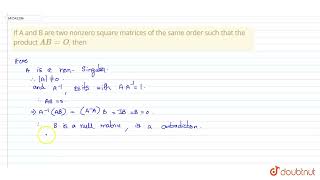 If A and B are two nonzero square matrices of the same order such that the
product AB = O, then
Here
A is a non- Singular
∴ |A| ≠ 0
and A⁻¹, exists with A·A⁻¹ = I.
∴ AB = 0.
⇒ A⁻¹(AB) = (A⁻¹A) B = IB = B = 0.
∴ B is a null matrix, is a contradiction.
doubtnut